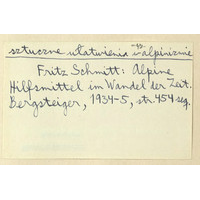 sztuczne ułatwienia w alpinizmie
Fritz Schmitt: Alpine
Hilfsmittel im Wandel der Zeit.
Bergsteiger, 1934-5, str. 454 seq.